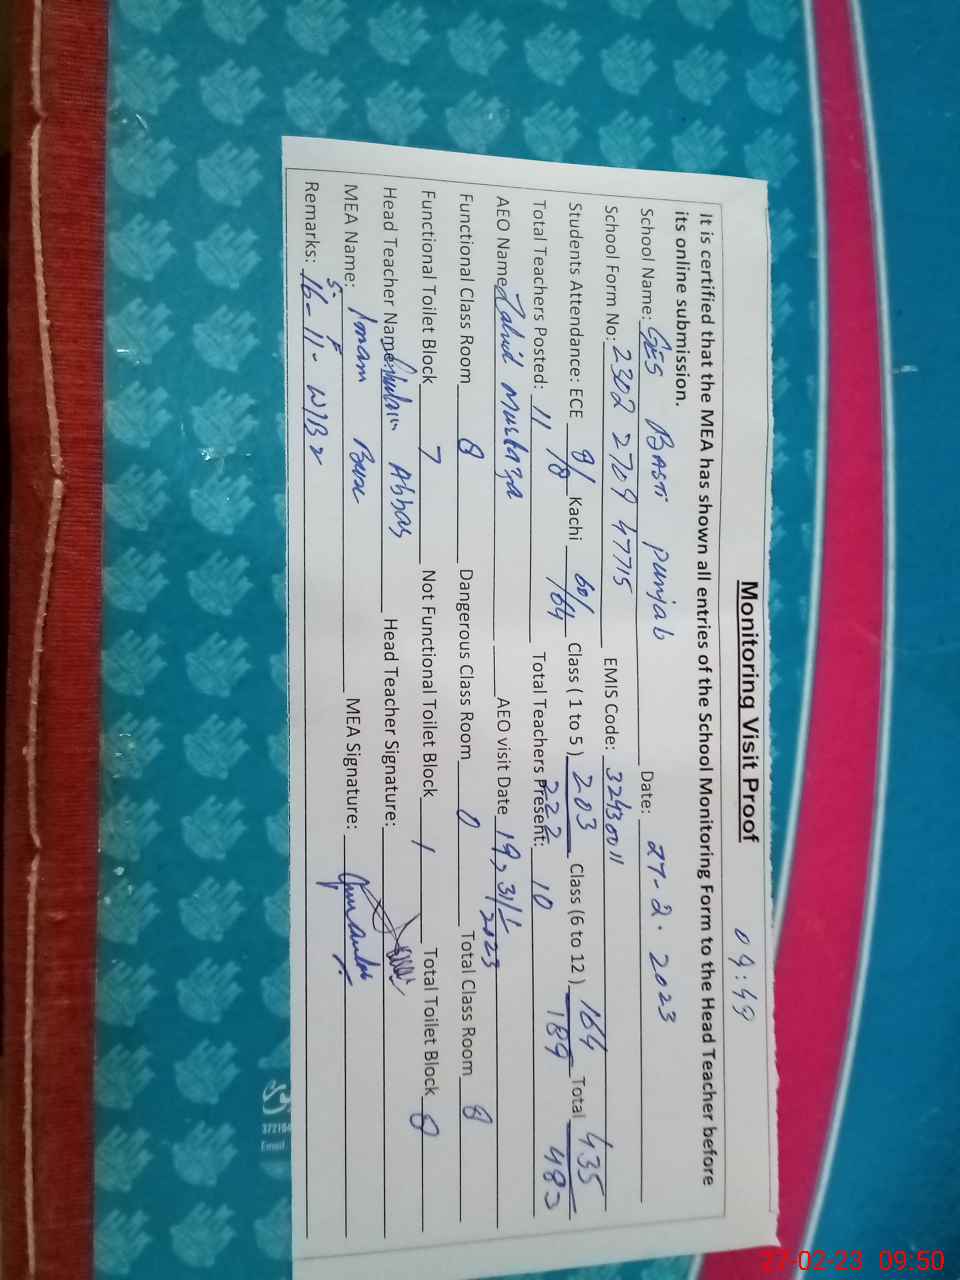 09:49
Monitoring Visit Proof
It is certified that the MEA has shown all entries of the School Monitoring Form to the Head Teacher before
its online submission.
School Name: GES Basti Punjab Date: 27-2-2023
School Form No: 2302 2709 47715 EMIS Code: 32430011
Students Attendance: ECE 8/8 Kachi 60/64 Class ( 1 to 5 ) 203 222 Class (6 to 12 ) 164 189 Total 435 483
Total Teachers Posted: 11 Total Teachers Present: 10
AEO Name Zahid Murtaza AEO visit Date 19, 31/1/2023
Functional Class Room 8 Dangerous Class Room 0 Total Class Room 8
Functional Toilet Block 7 Not Functional Toilet Block 1 Total Toilet Block 8
Head Teacher Name: Ghulam Abbas Head Teacher Signature:
MEA Name: Imam Bux MEA Signature:
Remarks: S- F
16-11-
372164
Email
27-02-23 09:50